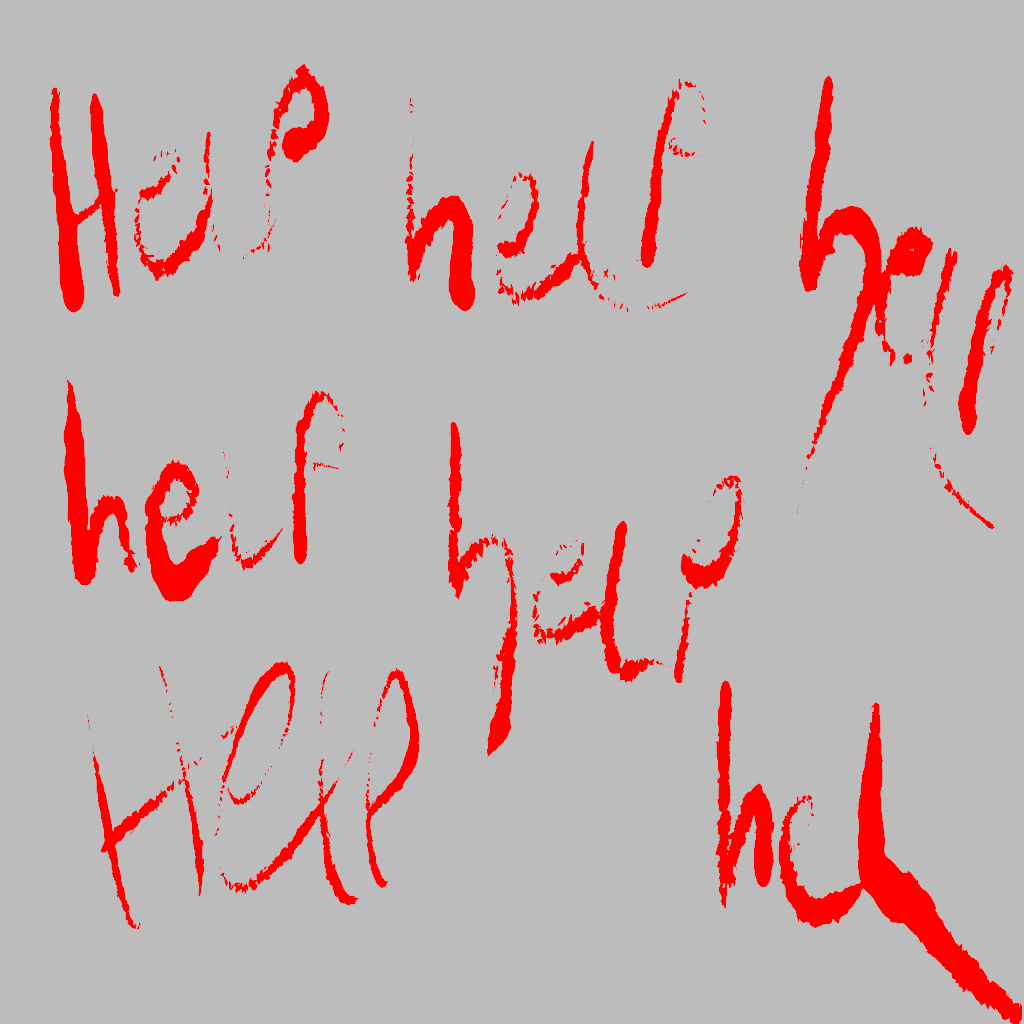 Help help help
help help
Help hel